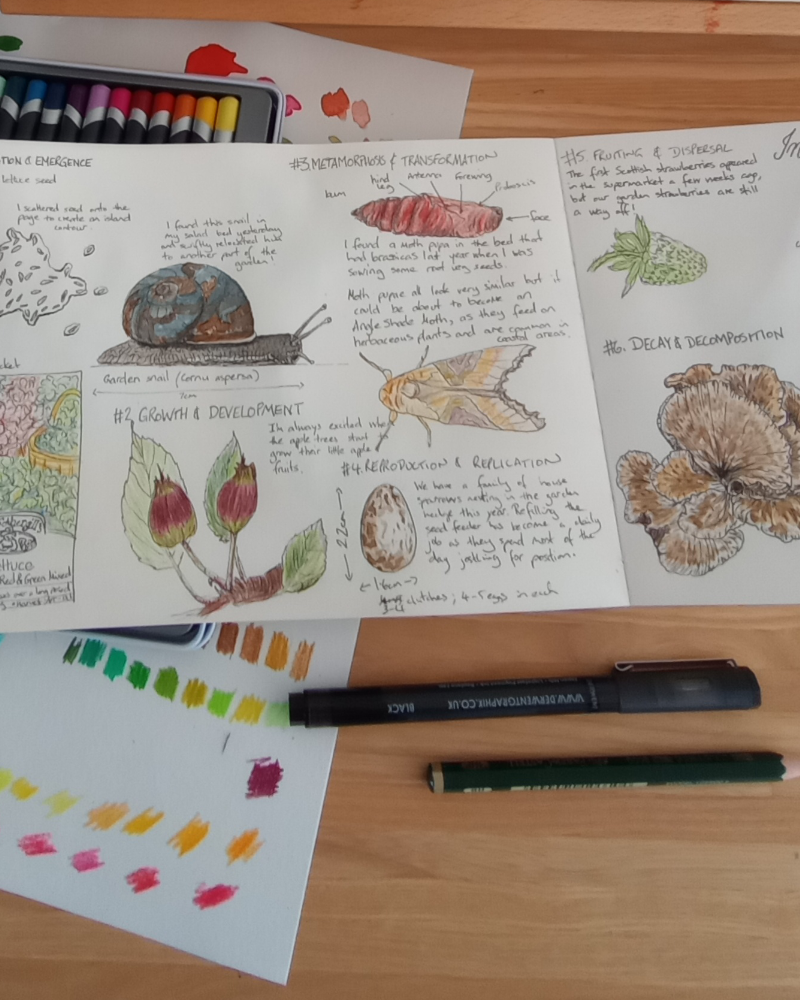 TION & EMERGENCE
lettuce seed
I scattered seed onto the
page to create an island
contour.
cket
ettuce
Red & Green
I found this snail in
my salad bed yesterday
and swiftly relocated him
to another part of the
garden!
Garden snail (Cornu aspersa)
7cm
#2 GROWTH & DEVELOPMENT
I'm always excited when
the apple trees start
grow their little apple
fruits.
#3 METAMORPHOSIS & TRANSFORMATION
hind leg
Antenna
Forewing
Proboscis
face
I found a Moth pupa in the bed that
had brassicas last year when I was
sowing some root veg seeds.
Moth pupae all look very similar but it
could be about to become an
Angle Shade Moth, as they feed on
herbaceous plants and are common in
coastal areas.
#4. REPRODUCTION & REPLICATION
We have a family of house
sparrows nesting in the garden
hedge this year. Refilling the
seed feeder has become a daily
job as they spend most of the
day jostling for position.
22cm
16cm
clutches; 4-5 eggs in each
#5 FRUITING & DISPERSAL
The first Scottish strawberries apeared
in the supermarket a few weeks ago,
but our garden strawberries are still
a way off!
#6. DECAY & DECOMPOSITION
In
BLACK
WWW.DERWENTGRAPHIK.CO.UK